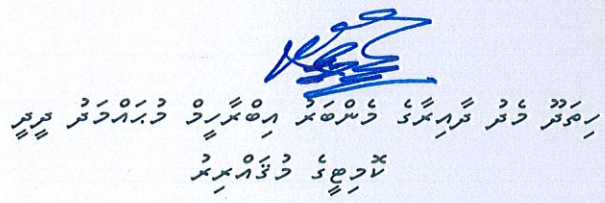 ހިތަދޫ މެދު ދާއިރާގެ މެންބަރު އިބްރާހީމް މުޙައްމަދު ދީދީ
ކޮމިޓީގެ މުޤައްރިރު